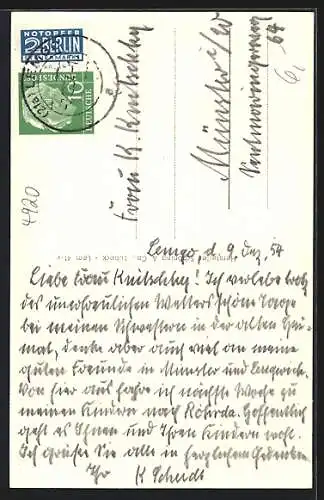 NOTOPFER
2 BERLIN
STEUERMARKE
DEUTSCHE
BUNDESPOST
10
Frau K. Knitschky
Münster i/W
64
4920
Lemgo, d. 9 Dez. 54
Liebe Frau Knitschky! Ich verlebe trotz
des unerfreulichen Wetters schöne Tage
bei meinen Schwestern in der alten Hei-
mat, denke aber auch viel an meine
guten Freunde in Münster und
Von hier aus fahre ich nächste Woche zu
meinen Kindern nach Röhrda. Hoffentlich
geht es Ihnen und Ihren Kindern wohl.
Ich grüße Sie alle in herzlichem Gedenken
Ihr K Scheidt